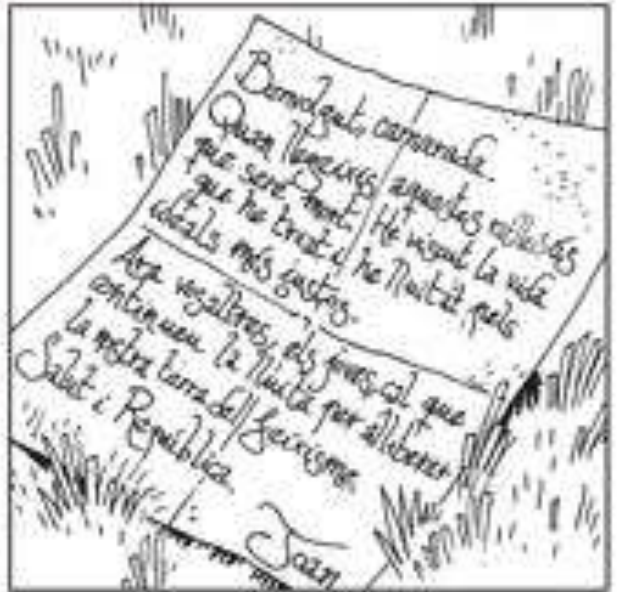 Benvolgut, camarada.
Quan llegeixis aquestes
que seré mort. He viscut la vida
que he triat i he lluitat pels
ideals més justos.
Ara vosaltres, els joves, cal que
continueu la lluita per alliberar
la nostra terra del feixisme.
Salut i República.
Joan